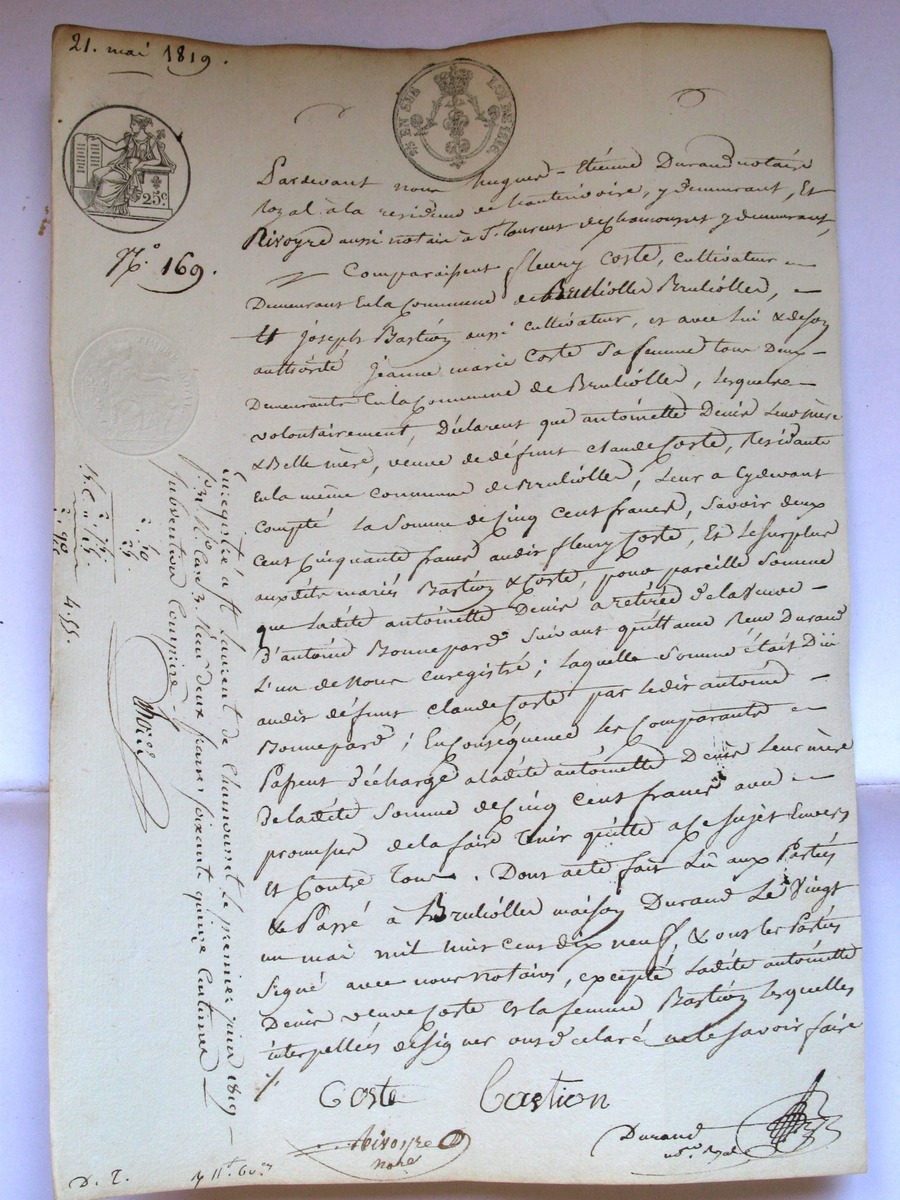 21. mai 1819.
25 EN SUS
LOI DE 1816.
25c
N.º 169.
Pardevant nous hugues-Etienne Durand notaire
Royal à la residence de hauterivoire, y demeurant, Et
Rivoyre aussi notaire à St. laurent de chamousset y demeurant,
Comparaissent fleury Coste, cultivateur
Demeurant En la Commune de Brulliolles,
Et Joseph Bastion aussi cultivateur, et avec lui & de son
authorité Jeanne marie Coste sa femme tous Deux
Demeurants En la Commune de Brulliolles, lesquels
volontairement, Déclarent que antoinette Denis Leur mère
& Belle mère, veuve de défunt claude Coste, Résidante
En la même Commune de Brulliolles, Leur a Cydevant
Compté La Somme de Cinq Cent francs, savoir deux
Cent Cinquante francs audit fleury Coste, Et Le surplus
auxdits mariés Bastion & Coste, pour pareille Somme
que Ladite antoinette Denis a retirée de la veuve
D'antoine Bonnepard suivant quittance Reçue Durand
L'un de Nous Enregistré; laquelle Somme était Düe
audit défunt claude Coste par ledit antoine
Bonnepard; En Conséquence les Comparants
Passent décharge à ladite antoinette Denis Leur mère
De ladite Somme de Cinq Cent francs avec
promesse de la faire tenir quitte à ce sujet Envers
Et Contre Tous. Dont acte fait Lû aux Parties
& Passé à Brulliolles maison Durand Le Vingt
un mai mil huit Cent dix neuf, & ont les Parties
signé avec nous notaires, excepté Ladite antoinette
Denis veuve Coste Et la femme Bastion Lesquelles
interpellées de signer ont déclaré ne le savoir faire
Coste Bastion
Rivoyre
nore
Durand
Enregistré à St. Laurent de Chamousset le premier juin 1819
Reçu deux francs soixante quinze Centimes
subvention Comprise
4.55.
D. T.